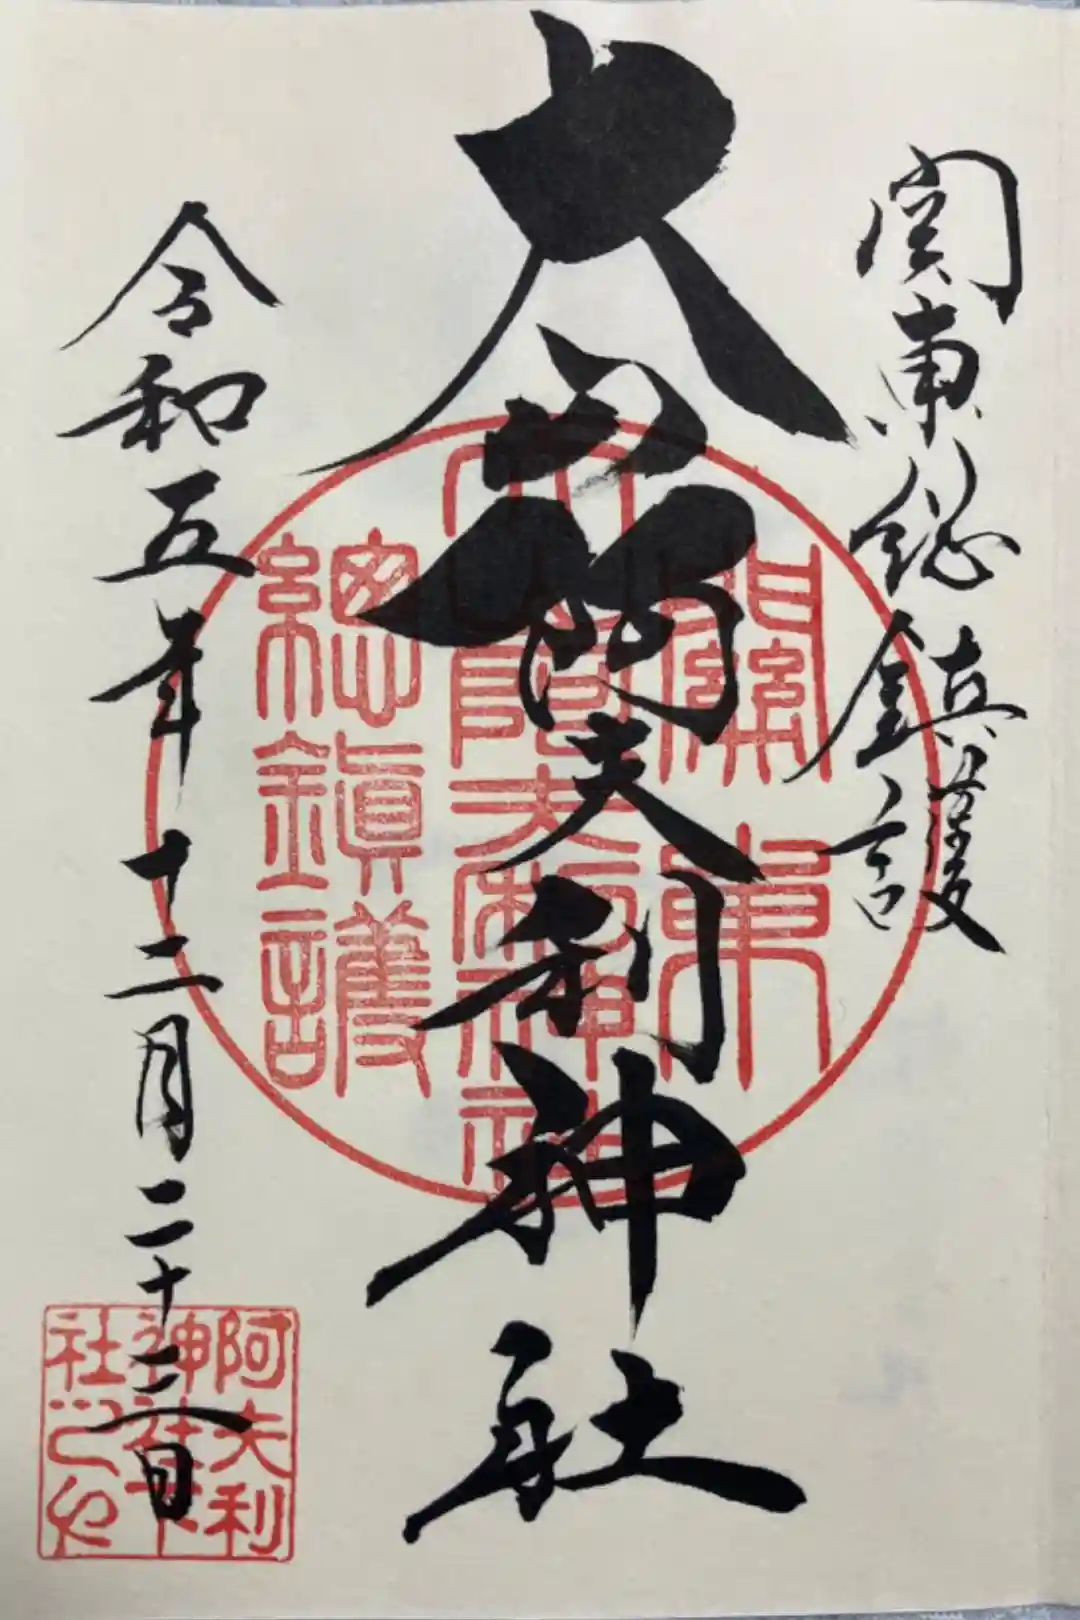 関東総鎮護
大山阿夫利神社
令和五年十二月二十三日
關東
大山阿夫利神社
總鎮護
阿夫利
神社下
社之印